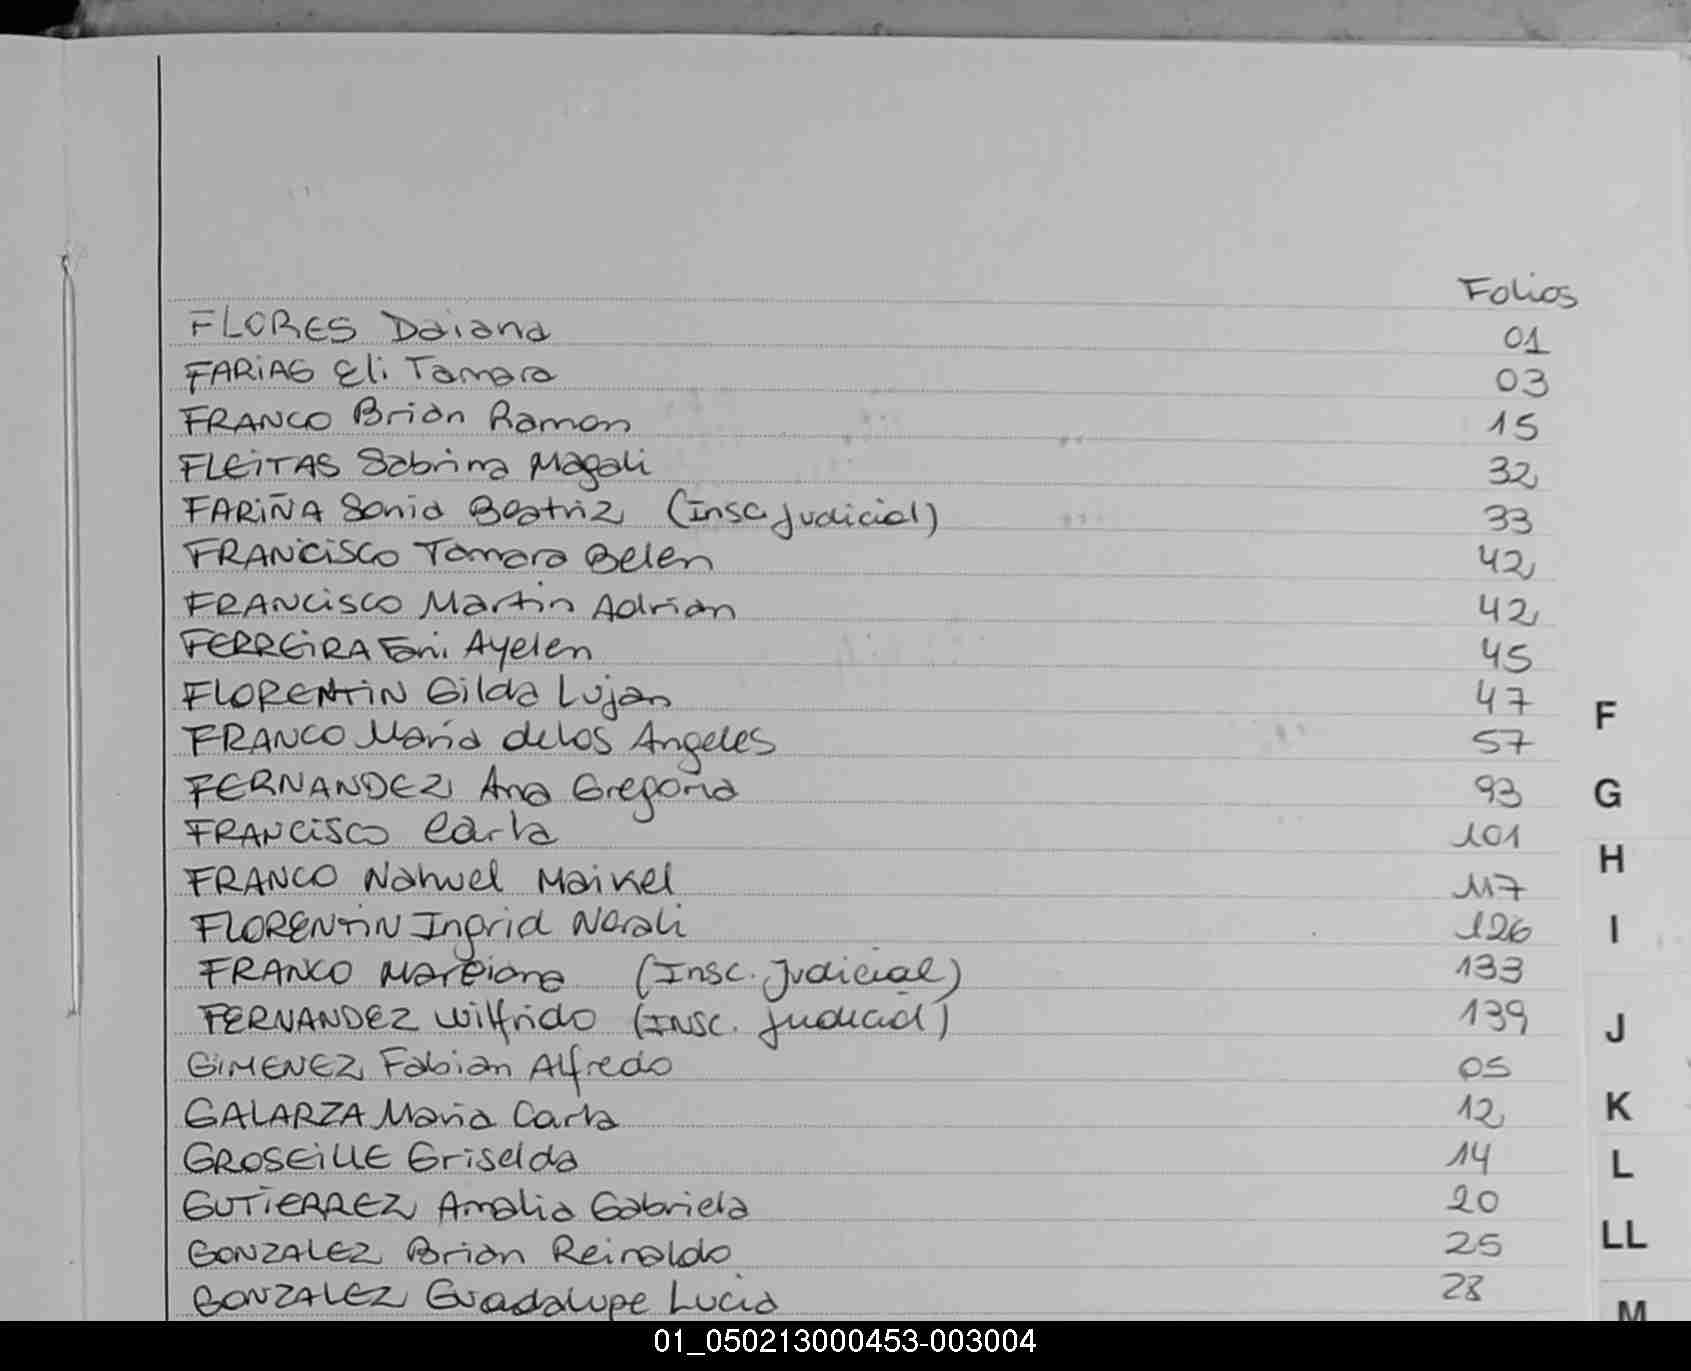 Folios
FLORES Daiana 01
FARIAS Eli Tamara 03
FRANCO Brian Ramon 15
FLEITAS Sabrina Magali 32
FARIÑA Sonia Beatriz (Insc. Judicial) 33
FRANCISCO Tamara Belen 42
FRANCISCO Martin Adrian 42
FERREIRA Ayelen 45
FLORENTIN Gilda Lujan 47
F
FRANCO Maria de los Angeles 57
FERNANDEZ Ana Gregoria 93
G
FRANCISCO Carla 101
H
FRANCO Nahuel Maikel 117
FLORENTIN Ingrid Nerali 126
I
FRANCO Marciana (Insc. Judicial) 133
FERNANDEZ Wilfrido (INSC. Judicial) 139
J
GIMENEZ Fabian Alfredo 05
GALARZA Maria Carla 12
K
GROSEILLE Griselda 14
L
GUTIERREZ Amalia Gabriela 20
GONZALEZ Brian Reinaldo 25
LL
GONZALEZ Guadalupe Lucia 28
M
01_050213000453-003004